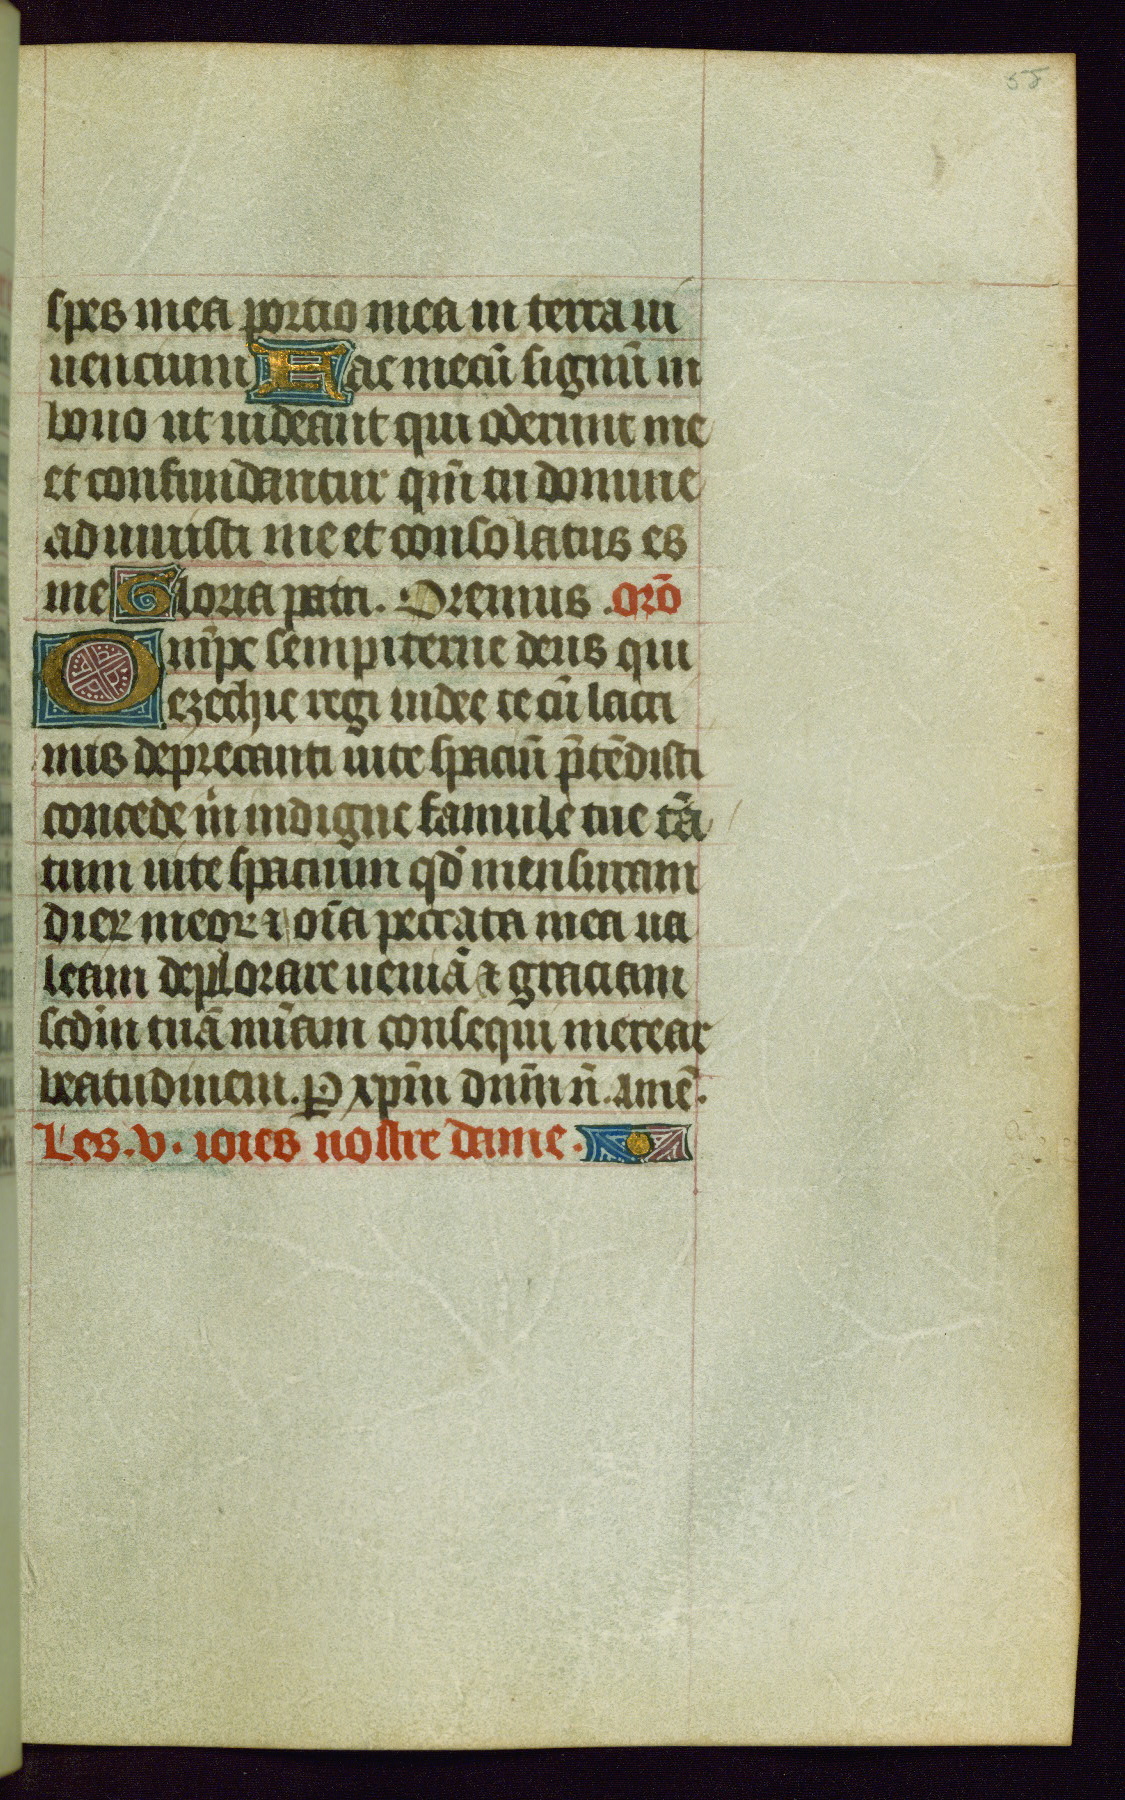 58
spes mea portio mea in terra ui
uencium Fac mecū signū in
bono ut uideant qui oderunt me
et confundantur qm̄ tu domine
adiuuisti me et consolatus es
me Gloria patri. Oremus. orō
Omp̄s sempiterne deus qui
ezechie regi iudee te cū lacri
mis deprecanti uite spaciū p̄tēdisti
concede m̄ indigne famule tue tā
tum uite spacium qd̄ mensuram
dierꝝ meorꝝ ⁊ oīa peccata mea ua
leam deplorare ueniā ⁊ graciam
scd̄m tuā mīam consequi merear
beatudinem. P xp̄m dnm̄ n̄. amē.
Les .v. ioies nostre dame.